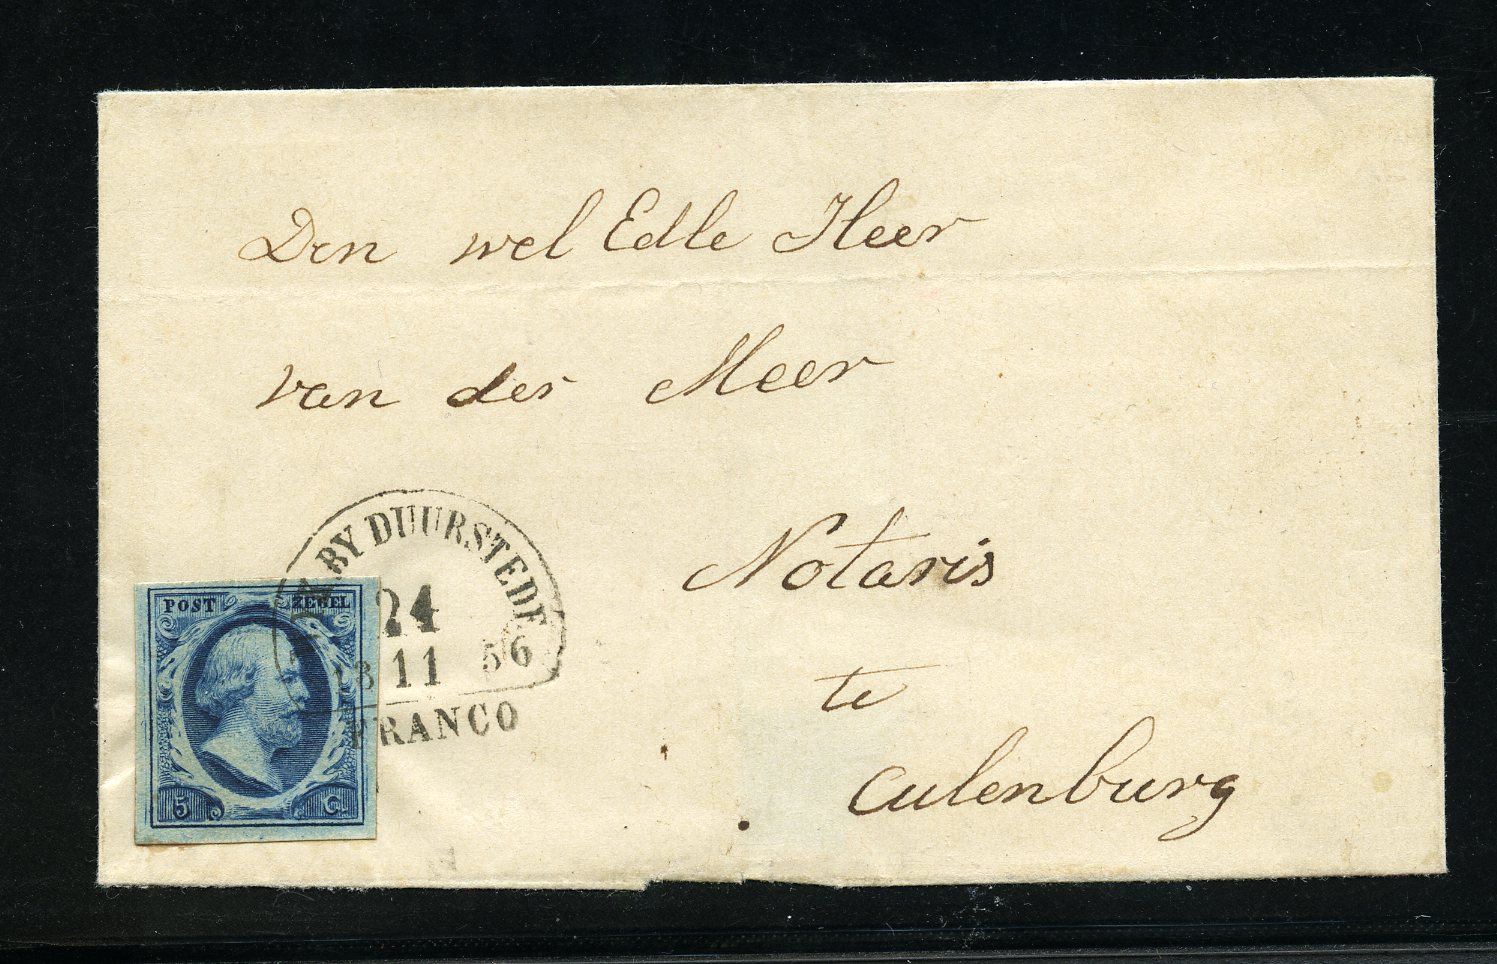 Den wel Edle Heer
van der Meer
Notaris
te
Culenburg
BY DUURSTEDE
24
18 11 56
FRANCO
POST ZEGEL
5 C.